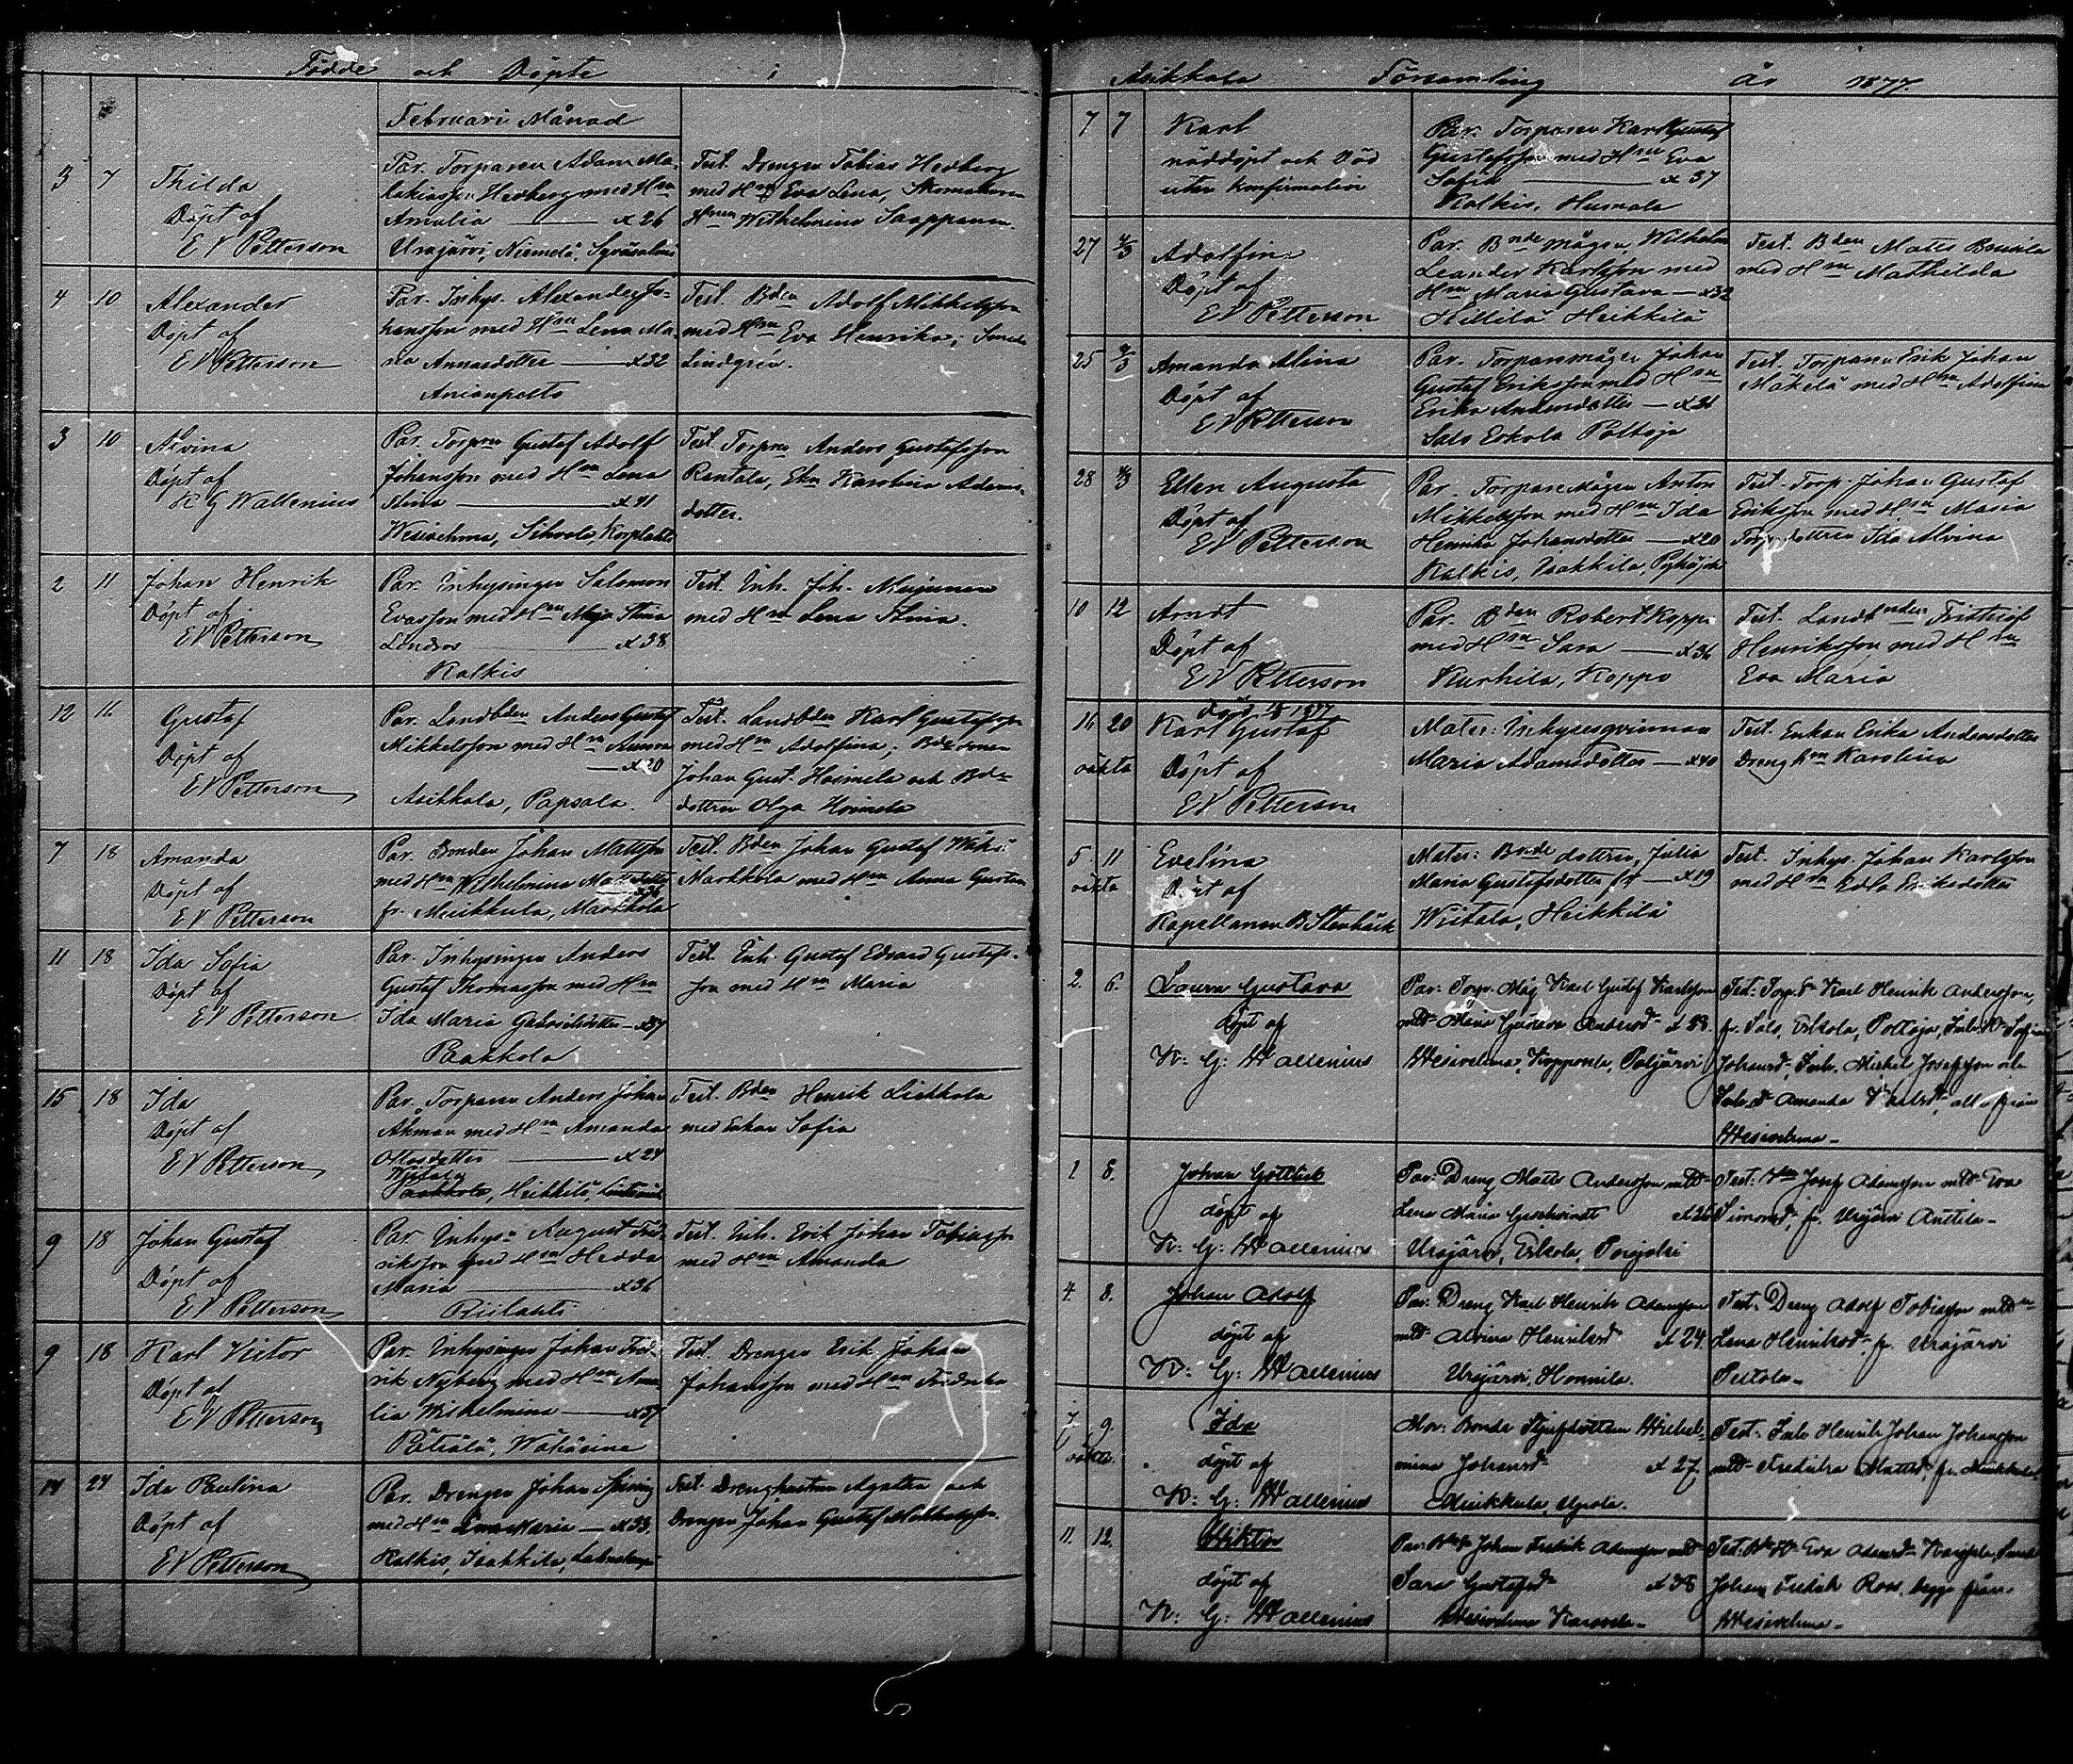 Födde och Döpte i
Februari Månad
3 7 Thilda
Döpt af
E V Petterson
Par. Torparen Adam Ma-
lakiasson Hedberg med Hn
Amalia — x 26
Urajärvi, Niemelä, Syväsalmi
Test. Drengen Tobias Hedberg
med Hn Eva Lena, Skomakaren
Hnen Wilhelmina Saappanen.
4 10 Alexander
Döpt af
E V Petterson
Par. Inhys. Alexander Jo-
hansson med Hn Lena Ma-
ria Annasdotter — x 32
Anianpelto
Test. Bden Adolf Mikkelsson
med Hn Eva Henrika;
Lindgrén.
3 10 Alvina
Döpt af
K G Wallenius
Par. Torpn Gustaf Adolf
Johansson med Hn Lena
Stina — x 41
Wesivehma, Sihvola, Korplahti
Test. Torpn Anders Gustafsson
Rantala, Ekn Karolina Adams-
dotter.
2 11 Johan Henrik
Döpt af
E V Petterson
Par. Inhysingen Salomon
Evasson med Hn Maja Stina
Lindroos — x 38
Kalkis
Test. Inh. Joh. Nieminen
med Hn Lena Stina.
12 16 Gustaf
Döpt af
E V Petterson
Par. Landbden Anders Gustaf
Mikkelsson med Hn Anna
— x 20
Asikkala, Papsala.
Test. Landbden Karl Gustafsson
med Hn Adolfina; Bdesonen
Johan Gust. Hoimela och Bde-
dottren Olga Hoimela
7 18 Amanda
Döpt af
E V Petterson
Par. Bonden Johan Mattsson
med Hn Wilhelmina Mattsdotter
x 36
fr. Muikkula, Markkola
Test. Bden Johan Gustaf Wähä
Markkola med Hn Anna Gustava
11 18 Ida Sofia
Döpt af
E V Petterson
Par. Inhysingen Anders
Gustaf Thomasson med Hn
Ida Maria Gabrielsdotter — x 37
Paakkola
Test. Inh. Gustaf Edvard Gustafs-
son med Hn Maria
15 18 Ida
Döpt af
E V Petterson
Par. Torparen Anders Johan
Åkman med Hn Amanda
Ottosdotter — x 24
Viitala
Paakkola, Heikkilä,
Test. Bden Henrik Liekkola
med Enkan Sofia
9 18 Johan Gustaf
Döpt af
E V Petterson
Par. Inhys: August Fred-
riksson med Hn Hedda
Maria — x 36
Riilahti
Test. Inh. Erik Johan Tobiasson
med Hn Amanda
9 18 Karl Victor
Döpt af
E V Petterson
Par. Inhysingen Johan Fred-
rik Nyberg med Hn Ama-
lia Wilhelmina — x 37
Pätiälä, Wähäsina
Test. Drengen Erik Johan
Johansson med Hn Fredrika
14 24 Ida Paulina
Döpt af
E V Petterson
Par. Drengen Johan Spering
med Hn Lena Maria — x 33.
Kalkis, Isakkila,
Test. Drenghustrun Agatha och
Drengen Johan Gustaf Mikkelsson.
Asikkala Församling år 1877.
7 7 Karl
nöddöpt och död
utan konfirmation
Par. Torparen Karl Gustaf
Gustafsson med Hn Eva
Sofia — x 37
Kalkis, Humala
27 4/3 Adolfina
Döpt af
E V Petterson
Par. Bndemågen Wilhelm
Leander Karlsson med
Hn Maria Gustava — x 32
Hillilä Heikkilä
Test. Bden Matts Busila
med Hn Mathilda
25 4/3 Amanda Alina
Döpt af
E V Petterson
Par. Torparemågen Johan
Gustaf Eriksson med Hn
Erika Andersdotter — x 21
Salo Erkola Paltoja
Test. Torparen Erik Johan
Mäkelä med Hn Adolfina
28 4/3 Ellen Augusta
Döpt af
E V Petterson
Par. Torparemågen Anton
Mikkelsson med Hn Ida
Henrika Johansdotter — x 20
Kalkis, Isakkila,
Test. Torp. Johan Gustaf
Eriksson med Hn Maria
Torpdottren Ida Alvina
10 12 Arndt
Döpt af
E V Petterson
Par. Bden Robert Koppo
med Hn Sara — x 36
Kurhila, Koppo
Test. Landbnden Frithiof
Henriksson med Hn
Eva Maria
16 20 Karl Gustaf
oäkta
Döpt af
E V Petterson
Mater: Inhysesqvinnan
Maria Adamsdotter — x 40
Test. Enkan Erika Andersdotter
Dreng hn Karolina
5 11 Evelina
oäkta
Döpt af
Kapellanen B Stenbäck
Mater: Bondedottren, Julia
Maria Gustafsdotter fr — x 19
Wiitala, Heikkilä
Test. Inhys. Johan Karlsson
med Hn Edla Eriksdotter
2. 6. Laura Gustava
döpt af
K: G: Wallenius
Par: Torp. Måg Karl Gustaf Karlsson
md Maria Gustava Andersd x 23.
Wesivehma, Kopponla, Paljärvi
Test: Torp. Karl Henrik Andersson,
fr. Salo, Erkola, Paltoja, Inh. Hn Sofia
Johansd, Inh. Michel Josefsson och
Inh. d Amanda Karlsd, alla från
Wesivehma —
1 8. Johan Gottlieb
döpt af
K: G: Wallenius
Par: Dreng Matts Andersson md
Lena Maria Geschvindt x 26
Urajärvi, Erkola,
Test: Josef Adamsson md Eva
Simonsd, fr. Urajärvi Anttila —
4. 8. Johan Adolf
döpt af
K: G: Wallenius
Par: Dreng Karl Henrik Adamsson
md Alvina Henriksd x 24.
Urajärvi, Honnila.
Test: Dreng Adolf Tobiasson md
Lena Henriksd fr. Urajärvi
Pertola —
7 9. Ida
oäkta.
döpt af
K: G: Wallenius
Mor: Bonde Styfdottern Wilhel-
mina Johansd x 27.
Muikkula,
Test: Henrik Johan Johansson
md Fredrika Mattsd, fr. Muikkula
11. 12. Wiktor
döpt af
K: G: Wallenius
Par: Johan Fredrik Adamsson md
Sara Gustafsd x 38
Wesivehma
Test: Eva Adamsd
Johan Fredrik Roos, begge från
Wesivehma —